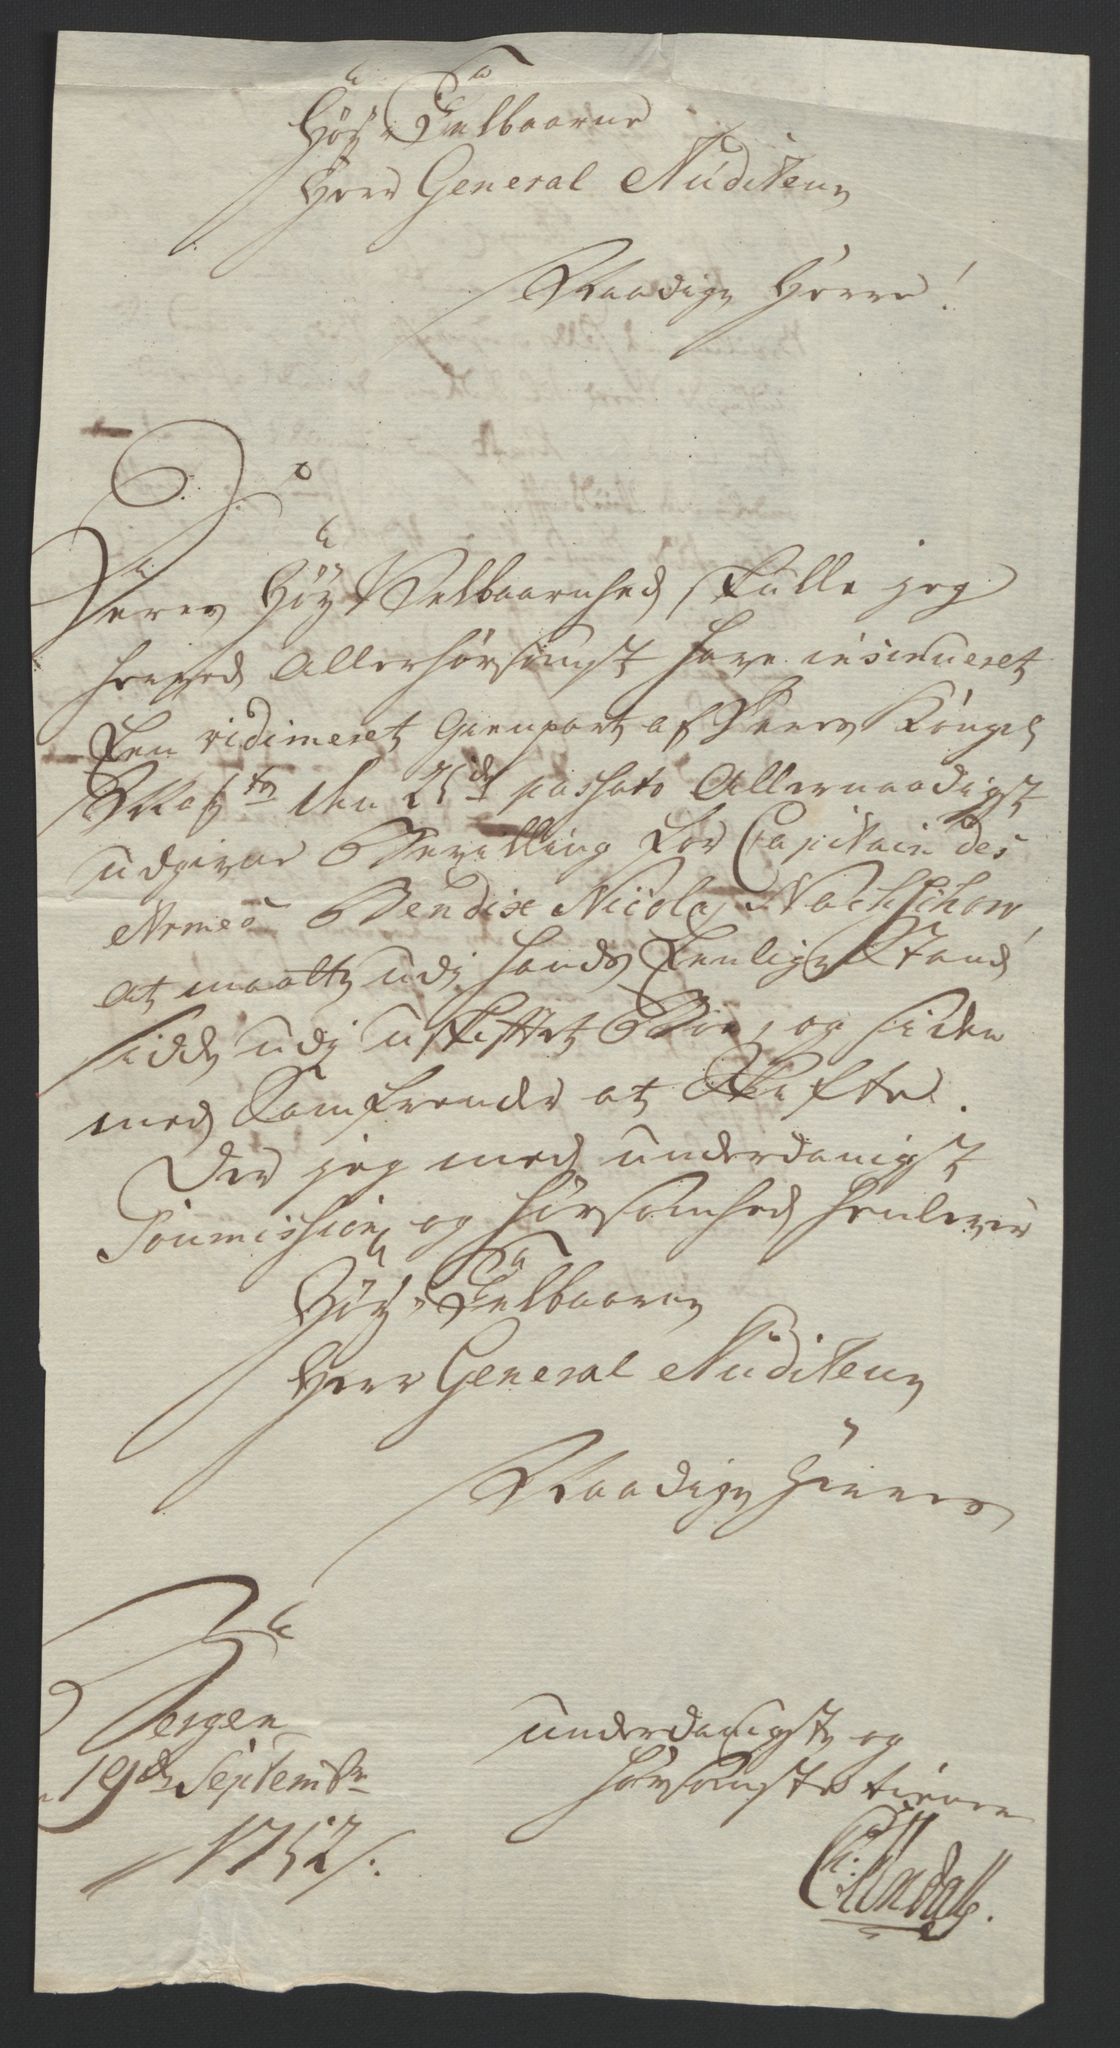 Höy Velbaarne
Herr General Auditeur
Naadige Herre!
Deres Höy Velbaarenhed skulle jeg
herved Allerhörsomst have insinueret
Een vidimeret Gienpart af Deres Kongel
May:ts den 25de passato Allernaadigst
udgivne Bevilling for Capitain des
Armes Bendix Nicolaj Nachschow
at maatte udj hands Eenlige Stand
sidde udj uskiftet Boe, og siden
med Samfrender at Skifte.
Der jeg med underdanigst
Soumission og hörsomhed henlever
Höy Velbaarne
Herr General Auditeur
Naadige Herres
Bergen
19de Septembr
1752/.
underdanigste og
hörsomste tienere